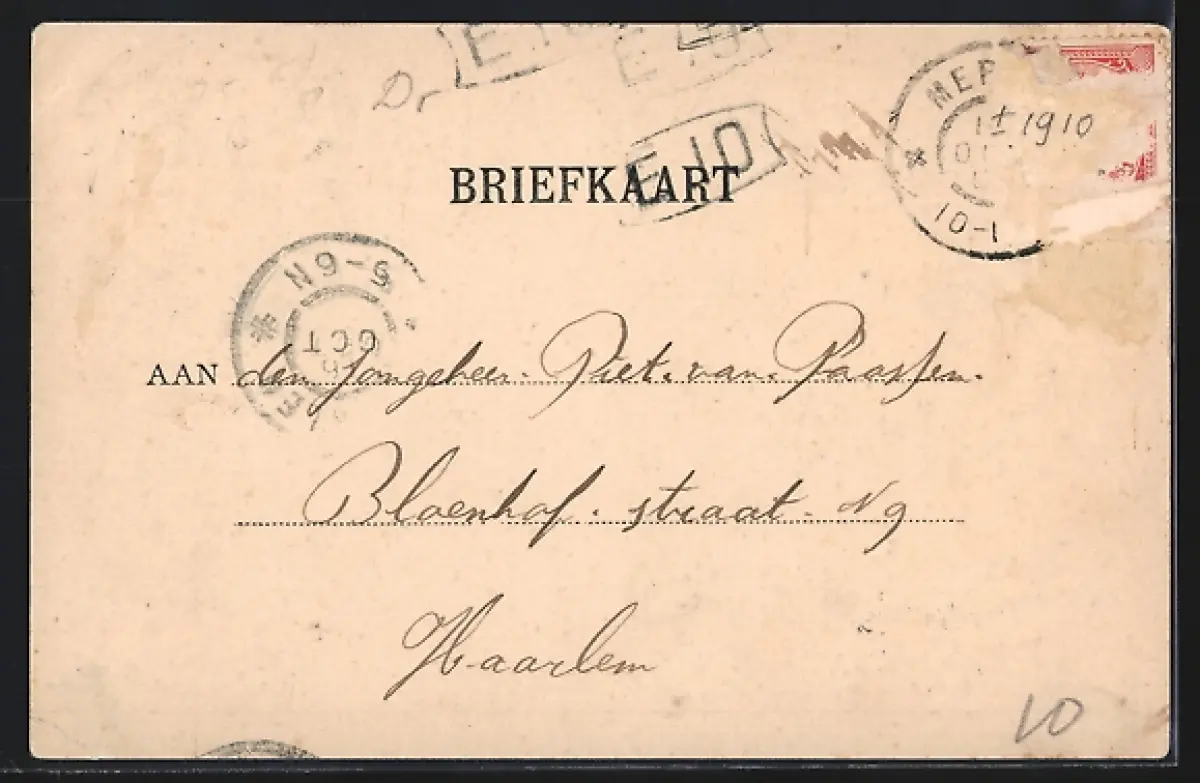 Dr
E 10
E 10
E 10
MEP
1± 1910
10-1
BRIEFKAART
N6-5
OCT
AAN den Jongeheer. Piet. van. Paassen.
Bloemhof. straat. N 9
Haarlem
10